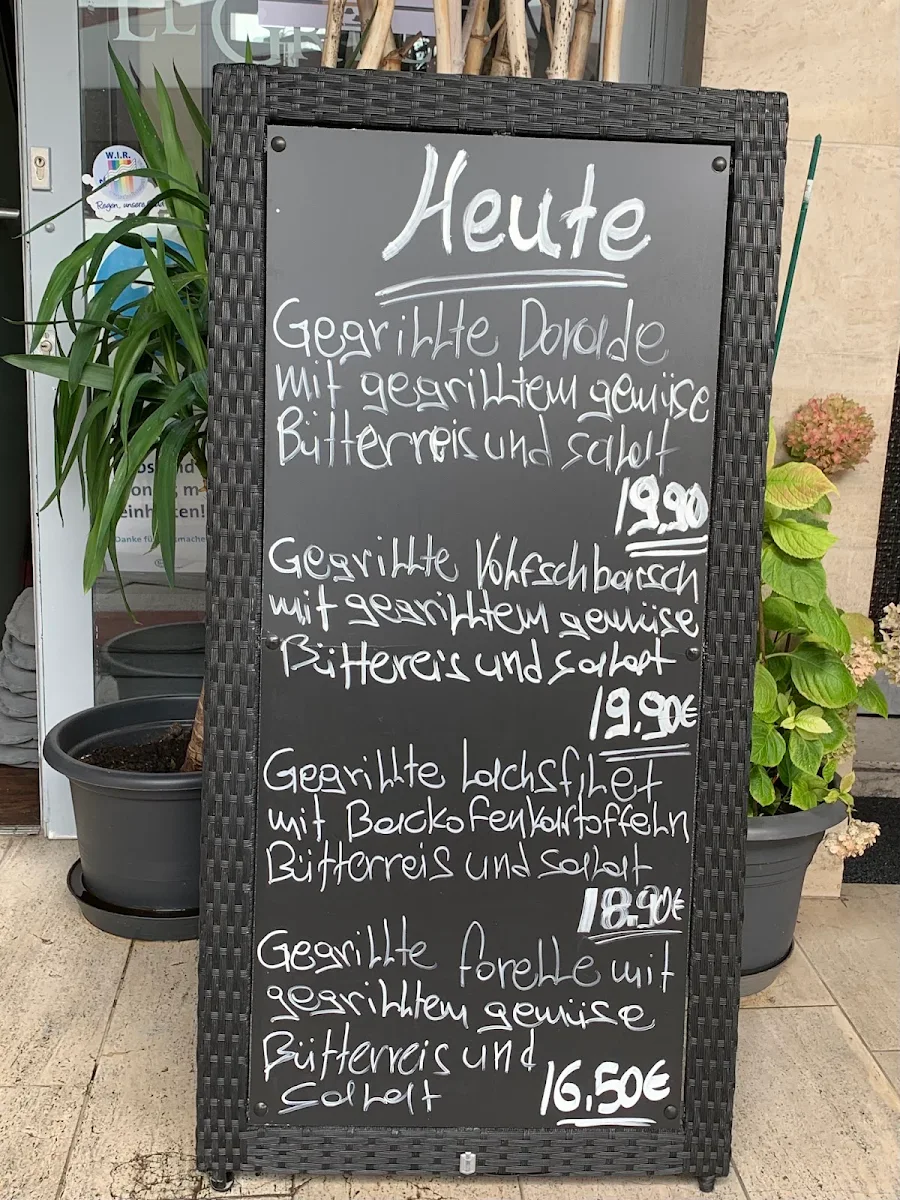 W.I.R.
Regen, unsere
Heute
Gegrillte Dorade
mit gegrilltem gemüse
Bütterreis und salat
19.90
Gegrillte Wolfschbarsch
mit gegrilltem gemüse
Büttereis und salat
19.90€
Gegrillte Lachsfilet
mit Backofenkartoffeln
Bütterreis und salat
18.90€
Gegrillte forelle mit
gegrilltem gemüse
Bütterreis und
salat
16.50€
einhalten!
Danke für